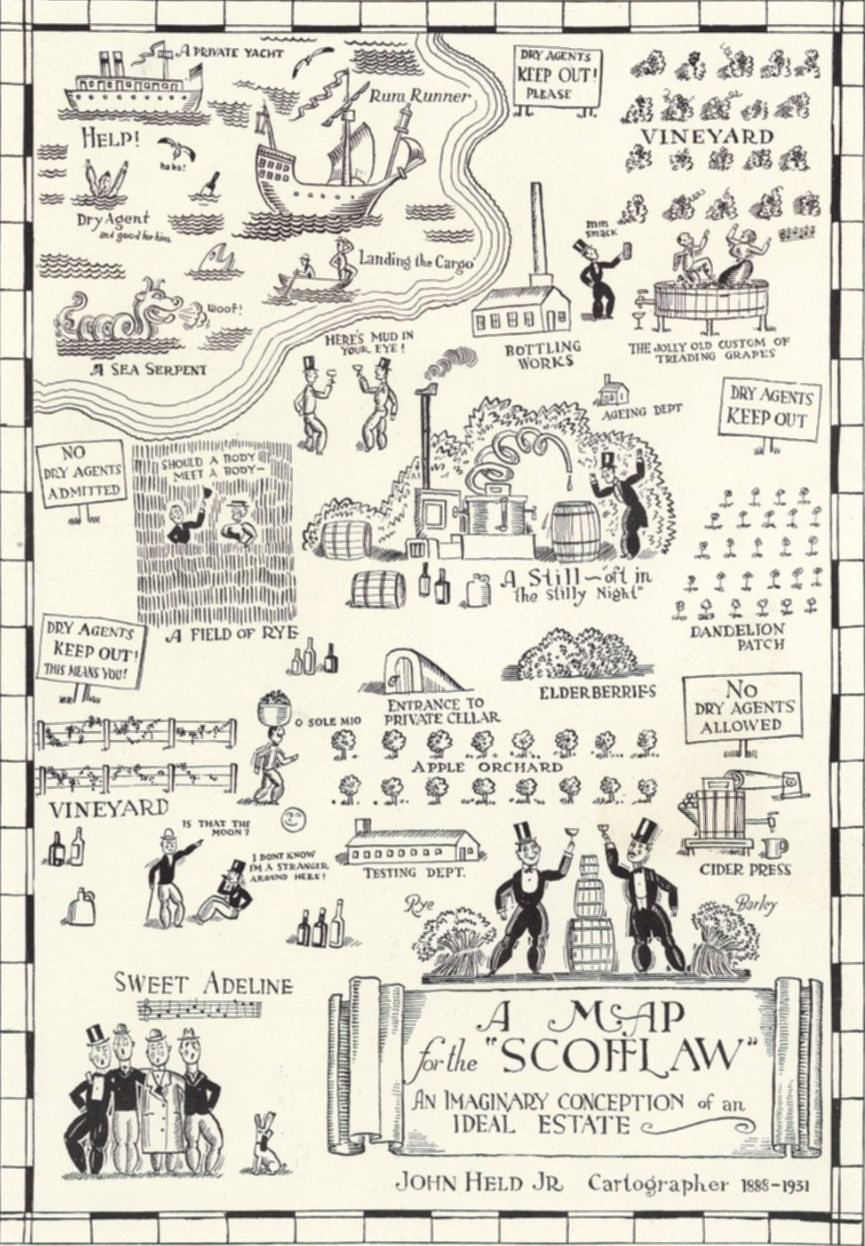 A PRIVATE YACHT
DRY AGENTS
KEEP OUT!
PLEASE
Rum Runner
HELP!
ha ha!
VINEYARD
Dry Agent
and good for him
mm
smack
Landing the Cargo
woof!
A SEA SERPENT
HERE'S MUD IN
YOUR EYE!
BOTTLING
WORKS
THE JOLLY OLD CUSTOM OF
TREADING GRAPES
AGEING DEPT
DRY AGENTS
KEEP OUT
NO
DRY AGENTS
ADMITTED
SHOULD A BODY
MEET A BODY—
A Still — "oft in
the stilly Night"
A FIELD OF RYE
DANDELION
PATCH
DRY AGENTS
KEEP OUT!
THIS MEANS YOU!
ENTRANCE TO
PRIVATE CELLAR
ELDERBERRIES
NO
DRY AGENTS
ALLOWED
O SOLE MIO
APPLE ORCHARD
VINEYARD
IS THAT THE
MOON?
I DONT KNOW
I'M A STRANGER
AROUND HERE!
TESTING DEPT.
CIDER PRESS
Rye
Barley
SWEET ADELINE
A MAP
for the "SCOFFLAW"
AN IMAGINARY CONCEPTION of an
IDEAL ESTATE
JOHN HELD JR Cartographer 1888-1931